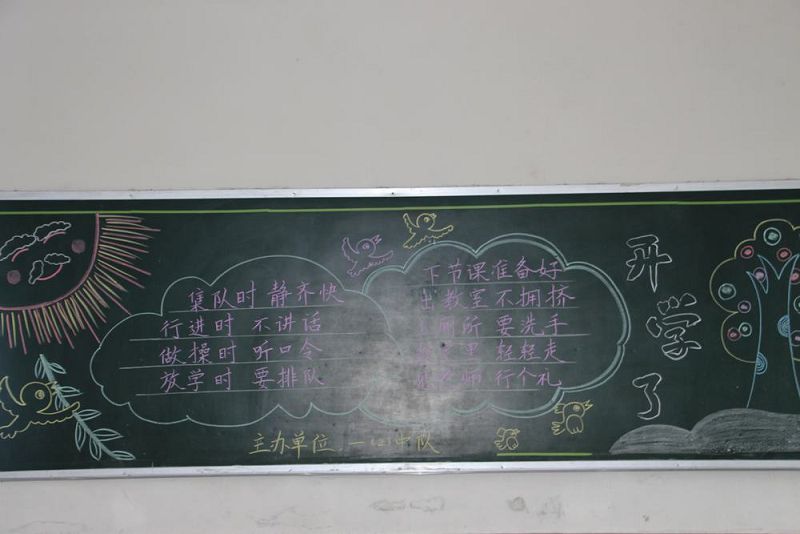 集队时 静齐快
行进时 不讲话
做操时 听口令
放学时 要排队
下节课准备好
出教室不拥挤
厕所 要洗手
里 轻轻走
师 行个礼
开学了
主办单位 一(2)中队